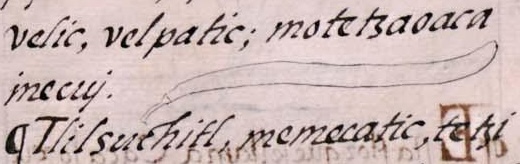 velic, velpatic; motetzaoaca
inecuj.
¶ Tlilsuchitl, memecatic, tetzi